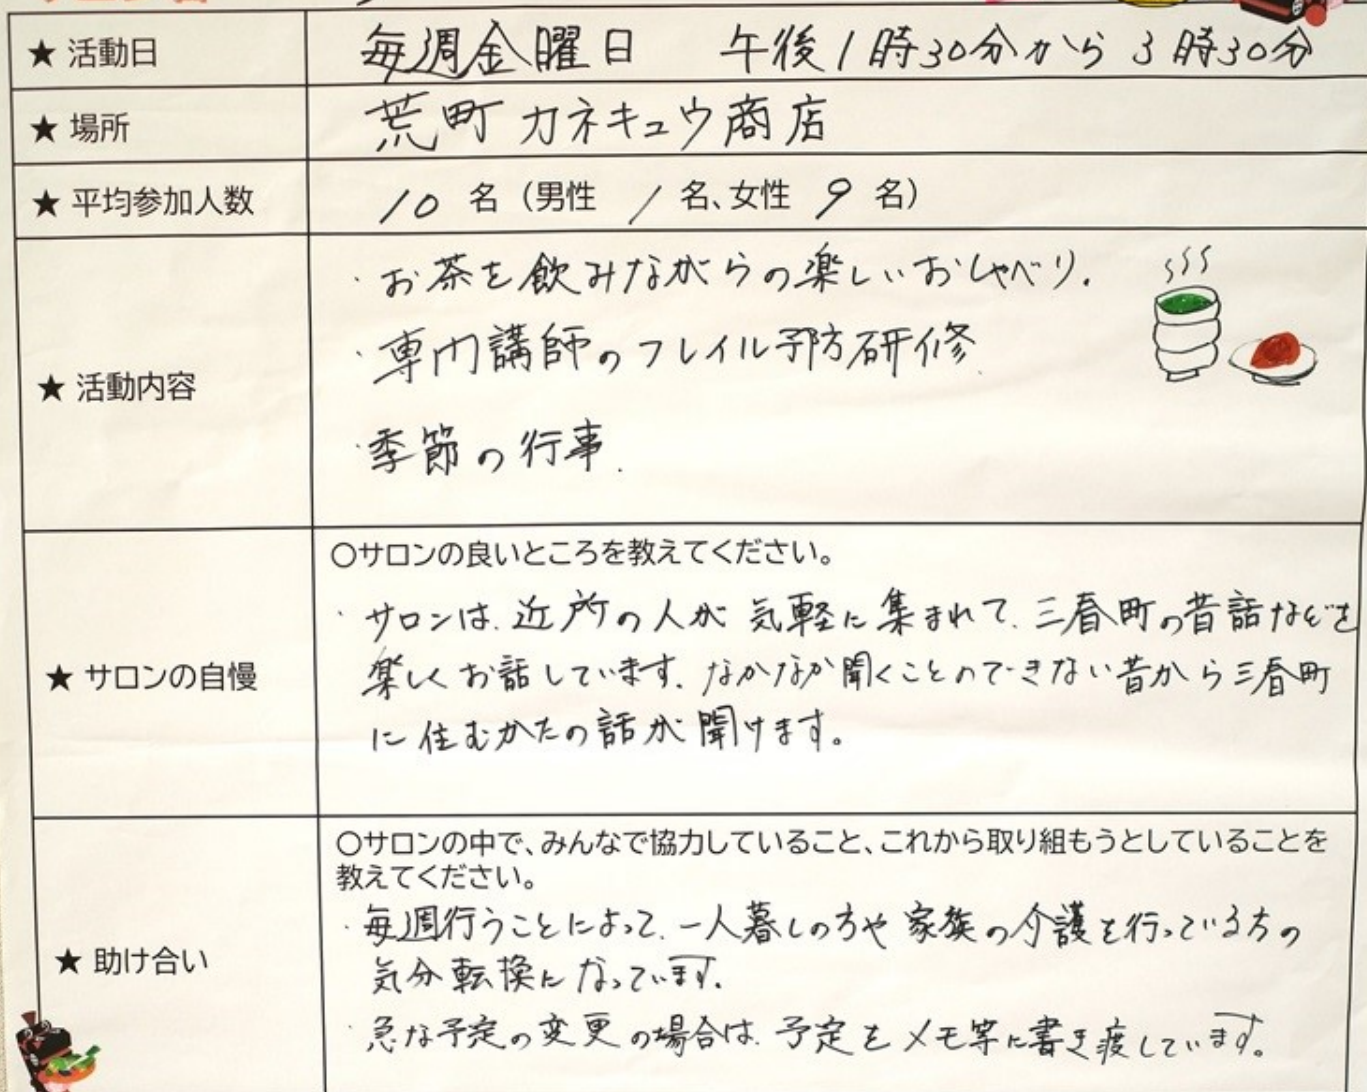 ★ 活動日 毎週金曜日 午後1時30分から3時30分
★ 場所 荒町カネキュウ商店
★ 平均参加人数 10名（男性 1名、女性 9名）
★ 活動内容
・お茶を飲みながらの楽しいおしゃべり.
・専門講師のフレイル予防研修
・季節の行事.
★ サロンの自慢
○サロンの良いところを教えてください。
・サロンは、近所の人が気軽に集まれて、三春町の昔話などを
楽しくお話しています。なかなか聞くことのできない昔から三春町
に住むかたの話が聞けます。
★ 助け合い
○サロンの中で、みんなで協力していること、これから取り組もうとしていることを
教えてください。
・毎週行うことによって、一人暮しの方や家族の介護を行っている方の
気分転換になっています。
・急な予定の変更の場合は、予定をメモ等に書き渡しています。